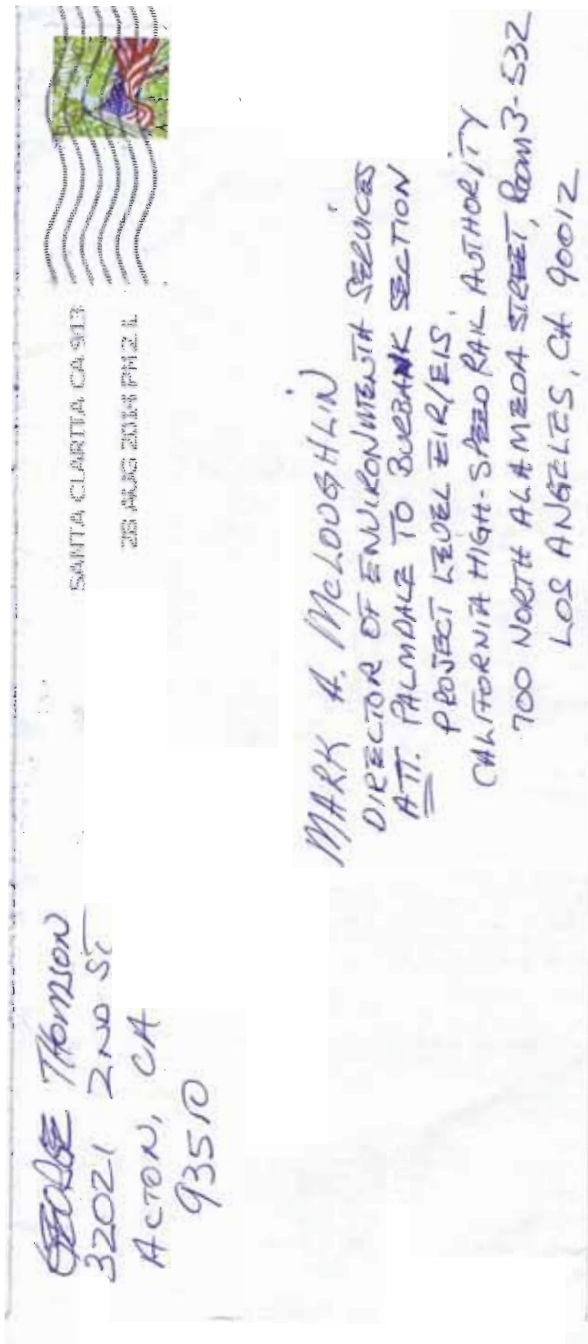 GEORGE THOMSON
32021 2ND ST
ACTON, CA
93510
SANTA CLARITA CA 913
28 AUG 2014 PM 2 L
MARK A. McLOUGHLIN
DIRECTOR OF ENVIRONMENTA SERVICES
ATT. PALMDALE TO BURBANK SECTION
PROJECT LEVEL EIR/EIS
CALIFORNIA HIGH-SPEED RAIL AUTHORITY
700 NORTH ALAMEDA STREET, ROOM 3-532
LOS ANGELES, CA 90012